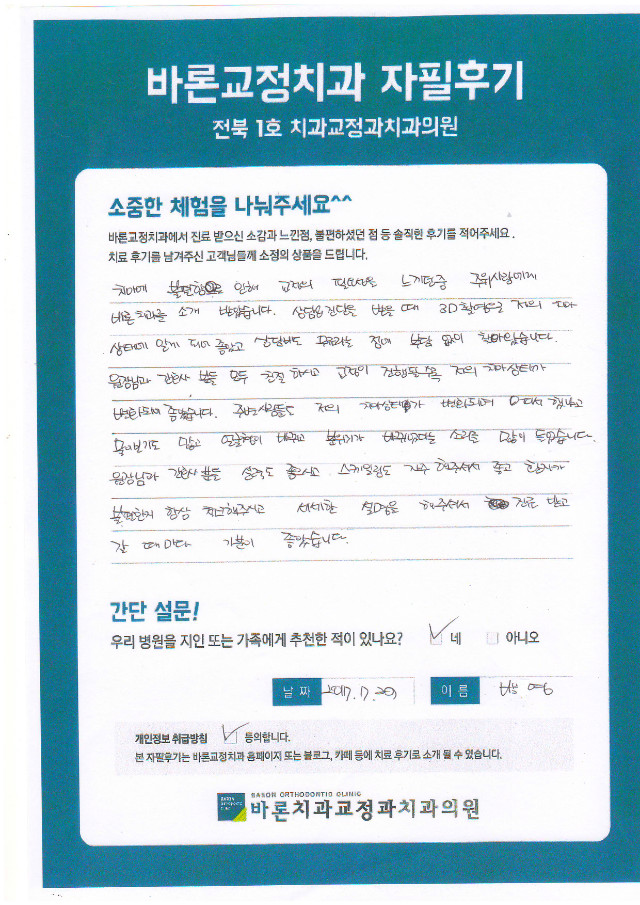 바론교정치과 자필후기
전북 1호 치과교정과치과의원
소중한 체험을 나눠주세요^^
바론교정치과에서 진료 받으신 소감과 느낀점, 불편하셨던 점 등 솔직한 후기를 적어주세요.
치료 후기를 남겨주신 고객님들께 소정의 상품을 드립니다.
치아에 불편함으로 인해 교정의 필요성을 느끼던중 주위사람에게
바론치과를 소개 받았습니다. 상담및진단을 받을 때 3D촬영으로 저의 치아
상태에 알게 되어 좋았고 상담비도 무료라는 점에 부담 없이 찾아갔습니다.
원장님과 간호사 분들 모두 친절 하시고 교정이 진행될수록 저의 치아상태가
변화되어 좋았습니다. 주변사람들도 저의 치아상태가 변화되어 어디서 했냐고
물어보기도 많고 얼굴형이 바뀌고 분위기가 바뀌었다는 소리를 많이 들었습니다.
원장님과 간호사분들 실력도 좋으시고 스케일링도 자주 해주셔서 좋고 환자가
불편한지 항상 체크해주시고 세세한 설명을 해주셔서 진료 받고
갈 때마다 기분이 좋았습니다.
간단 설문!
우리 병원을 지인 또는 가족에게 추천한 적이 있나요? 네 아니오
날 짜 2017.7.20 이 름
개인정보 취급방침 동의합니다.
본 자필후기는 바론교정치과 홈페이지 또는 블로그, 카페 등에 치료 후기로 소개 될 수 있습니다.
BARON ORTHODONTIC CLINIC
바론치과교정과치과의원